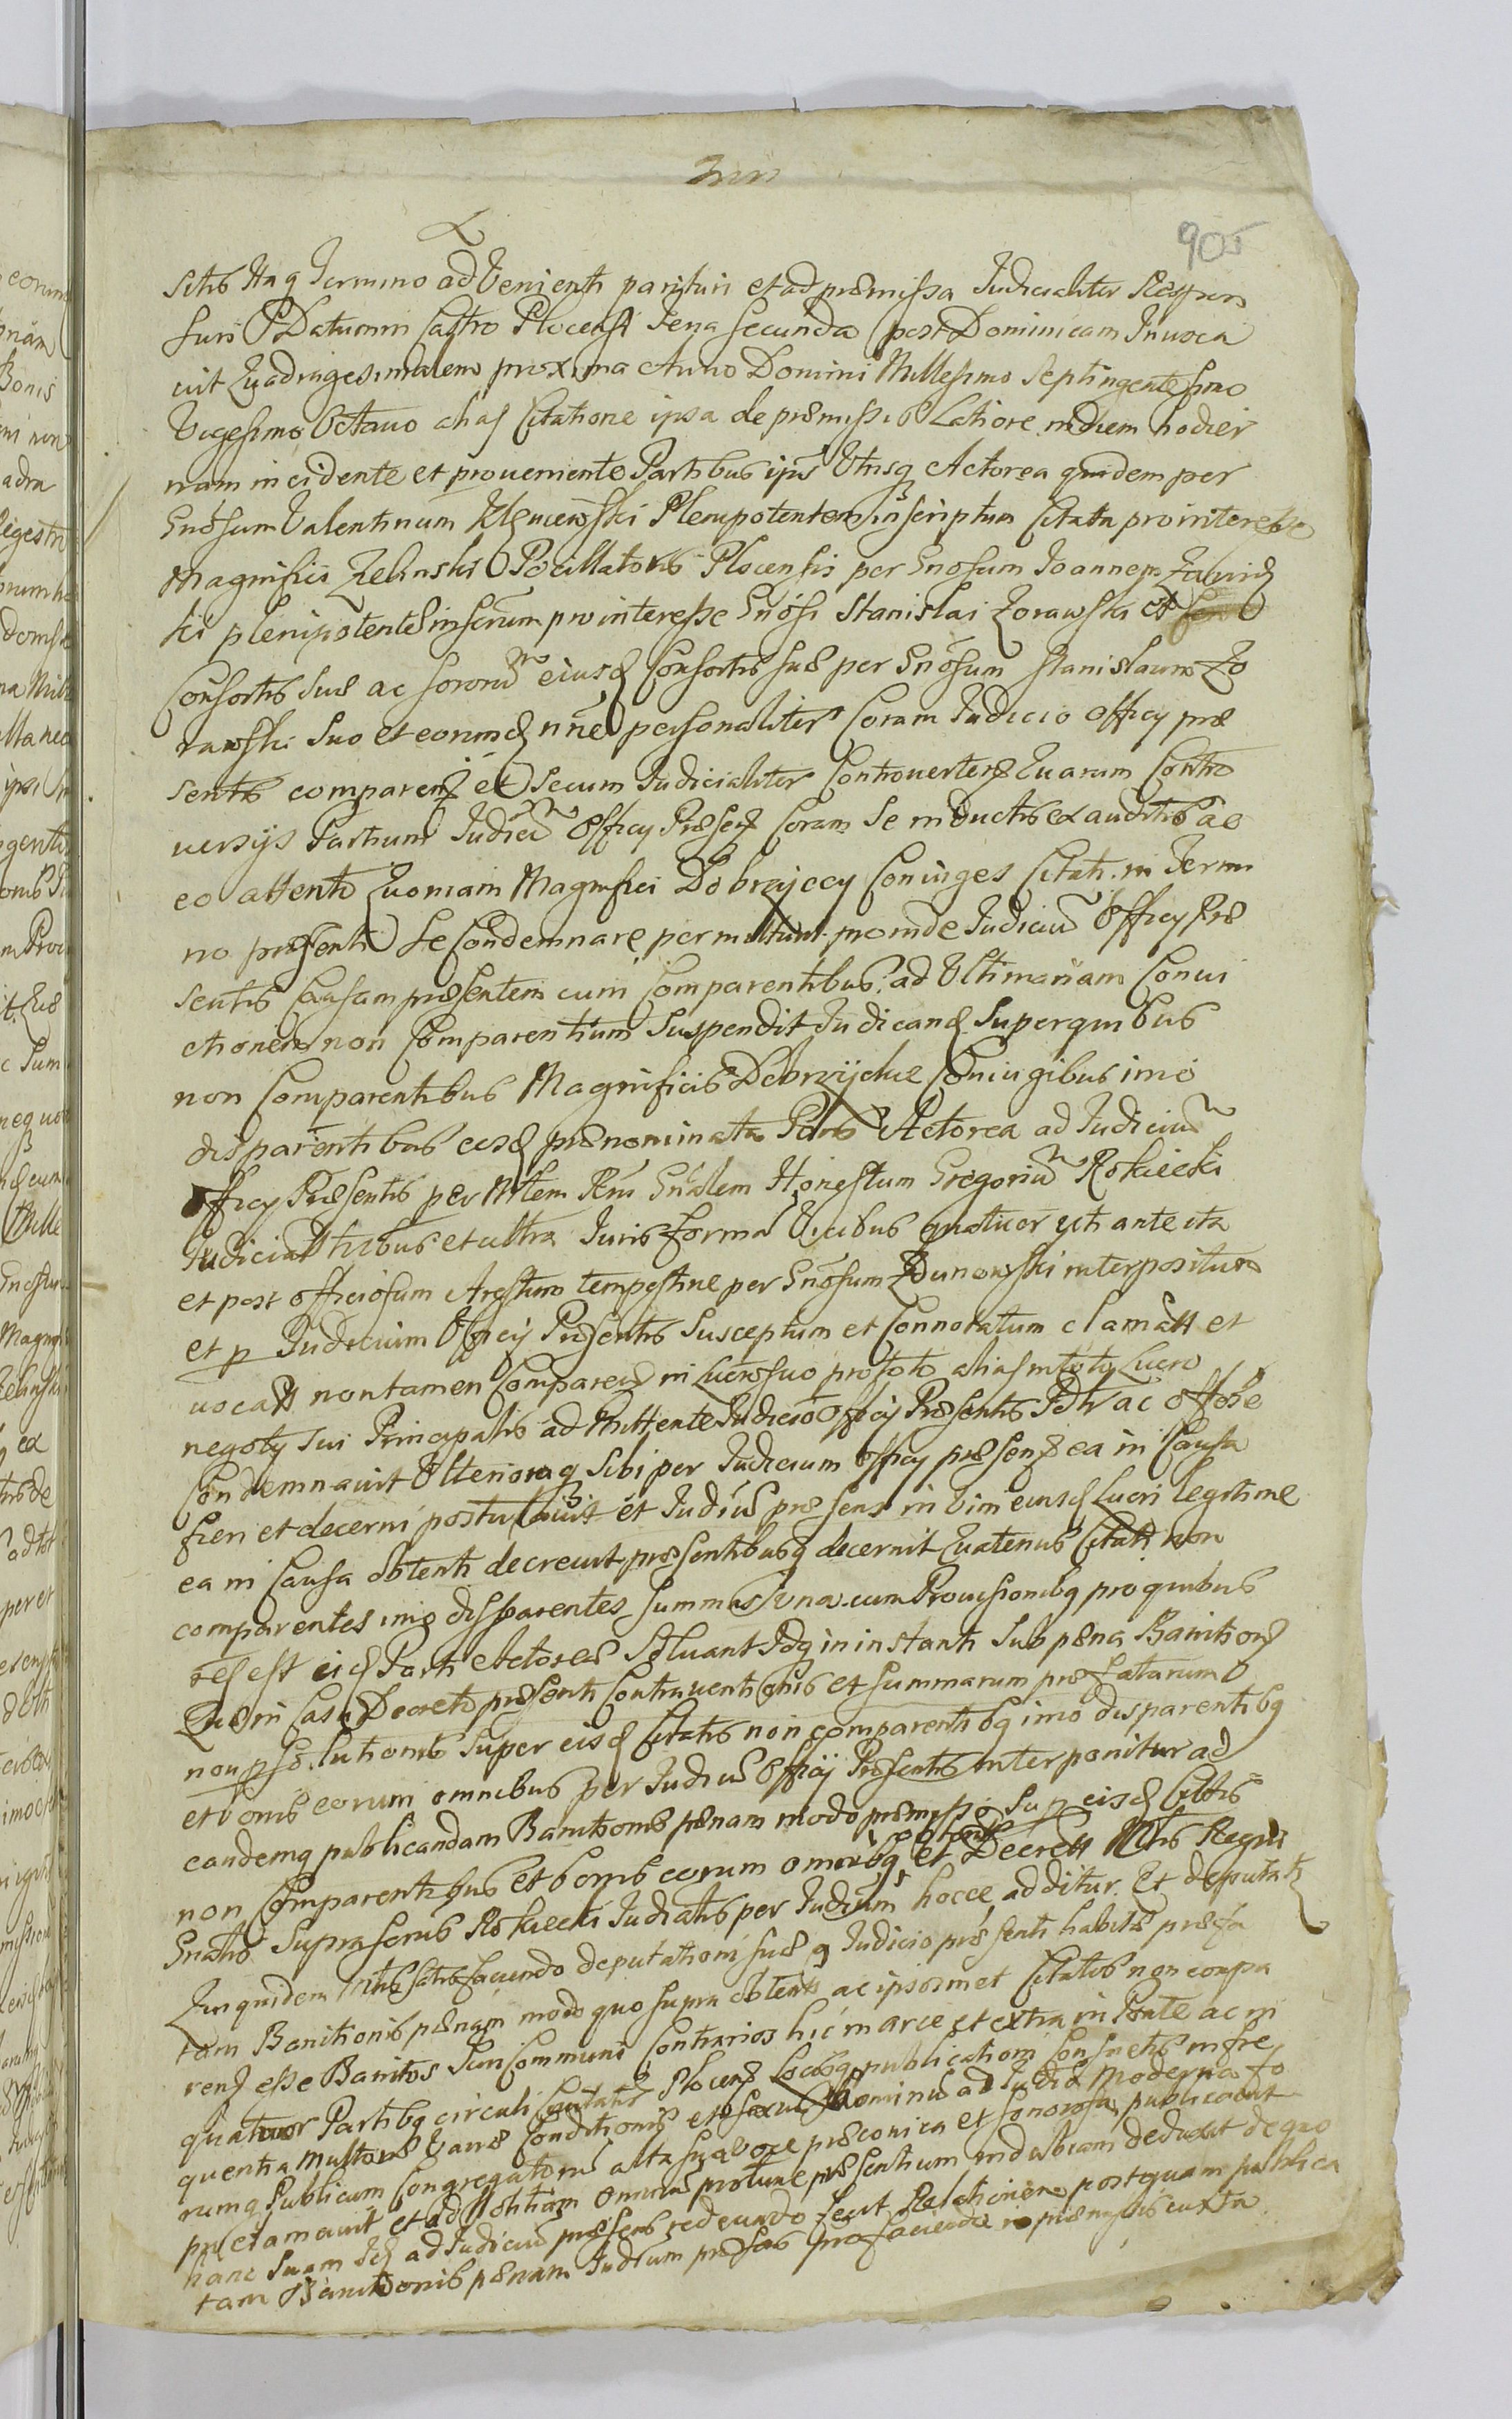 905
sitis Itaq Termino adVenienti parituri et ad præmissa Judicialiter Respon
suri Datum in Castro Plocensi Feria Secunda post Dominicam Invoca
vit Quadragesimalem proxima Anno Domini Millesimo Septingentesimo
Vigesimo Octavo alias Citatione ipsa de præmissis Latiore in diem hodier
nam incidente et proveniente Partibus ipsis Utrisq Actorea quidem per
Gnosum Valentinum Plenipotentem inscriptum Citata pro interesse
Magnifici Zelinski Pocillatoris Plocensis per Gnosum Joannem
ki plenipotentē inscrum pro interesse Gnosi Stanislai Zorawski et
Consortis suæ ac sororū eiusd Consortis suæ per Gnosum Stanislaum Zo
rawski suo et eorund nne personaliter Coram Judicio Officy præ
sentis comparen et secum Judicialiter Controverten Quarum Contro
versijs Partium Judiciū Officy Præsen Coram se inductis exauditis ac
eo attento Quoniam Magnifici Dobrzyccy Coniuges Citati in Termi
no præsenti se Condemnare permittunt proinde Judiciū Officy Præ
sentis Causam præsentem cum Comparentibus ad Ultimariam Convi
ctionem non Comparentium Suspendit Judicand Super quibus
non Comparentibus Magnificis Dobrzyckie Coniugibus imo
disparentibus eisd prænominata Pars Actorea ad Judiciū
Officy Præsentis per Mtlem Rni Gnalem Honestum Gregoriū Rokiecki
Judicial tribus et ultra Juris forma Vicibus quatuor uti ante ita
et post officiosum Arestum tempestive per Gnosum Zdunowski interpositum
et p Judicium Officij Præsentis Susceptum et Connotatum clamatt et
vocatt non tamen Comparen in Lucro suo pro toto alias in toto Lucro
negoty sui Principalis admittente Judicio Officij Præsentis Pdtr ac
Condemnavit Ulterioraq sibi per Judicium Officy præsen ea in Causa
fieri et decerni postulavit et Judiū præsens in vim eiusd Lucri legitime
ea in Causa obtenti decrevit præsentibusq decernit Quatenus Citati non
comparentes imo disparentes Summas una cum Provisionibq pro quibus
res est eid Parti Actoreæ Soluant Idq in instanti Sub pæna Banition
Quæ in Casu Decreto præsenti Contraventionis et Summarum præfatarum
non psolutionis Super eisd Citatis non comparentibq imo disparentibq
et bonis eorum omnibus per Judiū Officij Præsentis interponitur ad
eandemq publicandam Banitionis pænam modo præmisso Sup eisd Cittis
non Comparentibus et bonis eorum omnibq obtent et Decrett Mtlis Regni
Gnalis Suprascrus Rokiecki Judialis per Judium hocce additur Et deputatr
Qui quidem Mtlis satisfaciendo deputationi suæ q Judicio præsenti habitæ præfa
tam Banitionis pænam modo quo supra obtent ac ipsosmet Citatos non compa
ren esse Banitos Juri Communi Contrarios hic in arce et extra in Ponte ac in
quatuor Partibq circuli Civitatis Plocen Locisq publicationi Consuetis in fre
quentia Multorū Variæ Conditionis et sexus Hominū ad Judia Moderna fo
rumq Publicum Congregatorū alta suavoce præconica et sonorosa publicavit
proclamavit et ad Notitiam omnium protunc præsentium indubiam deduxit de quo
hanc suam Id ad Judiciū præsens redeundo fecit Relationem postquam publica
tam Banitionis pænam Judium præsens pro faciendo in præmissis iuxta